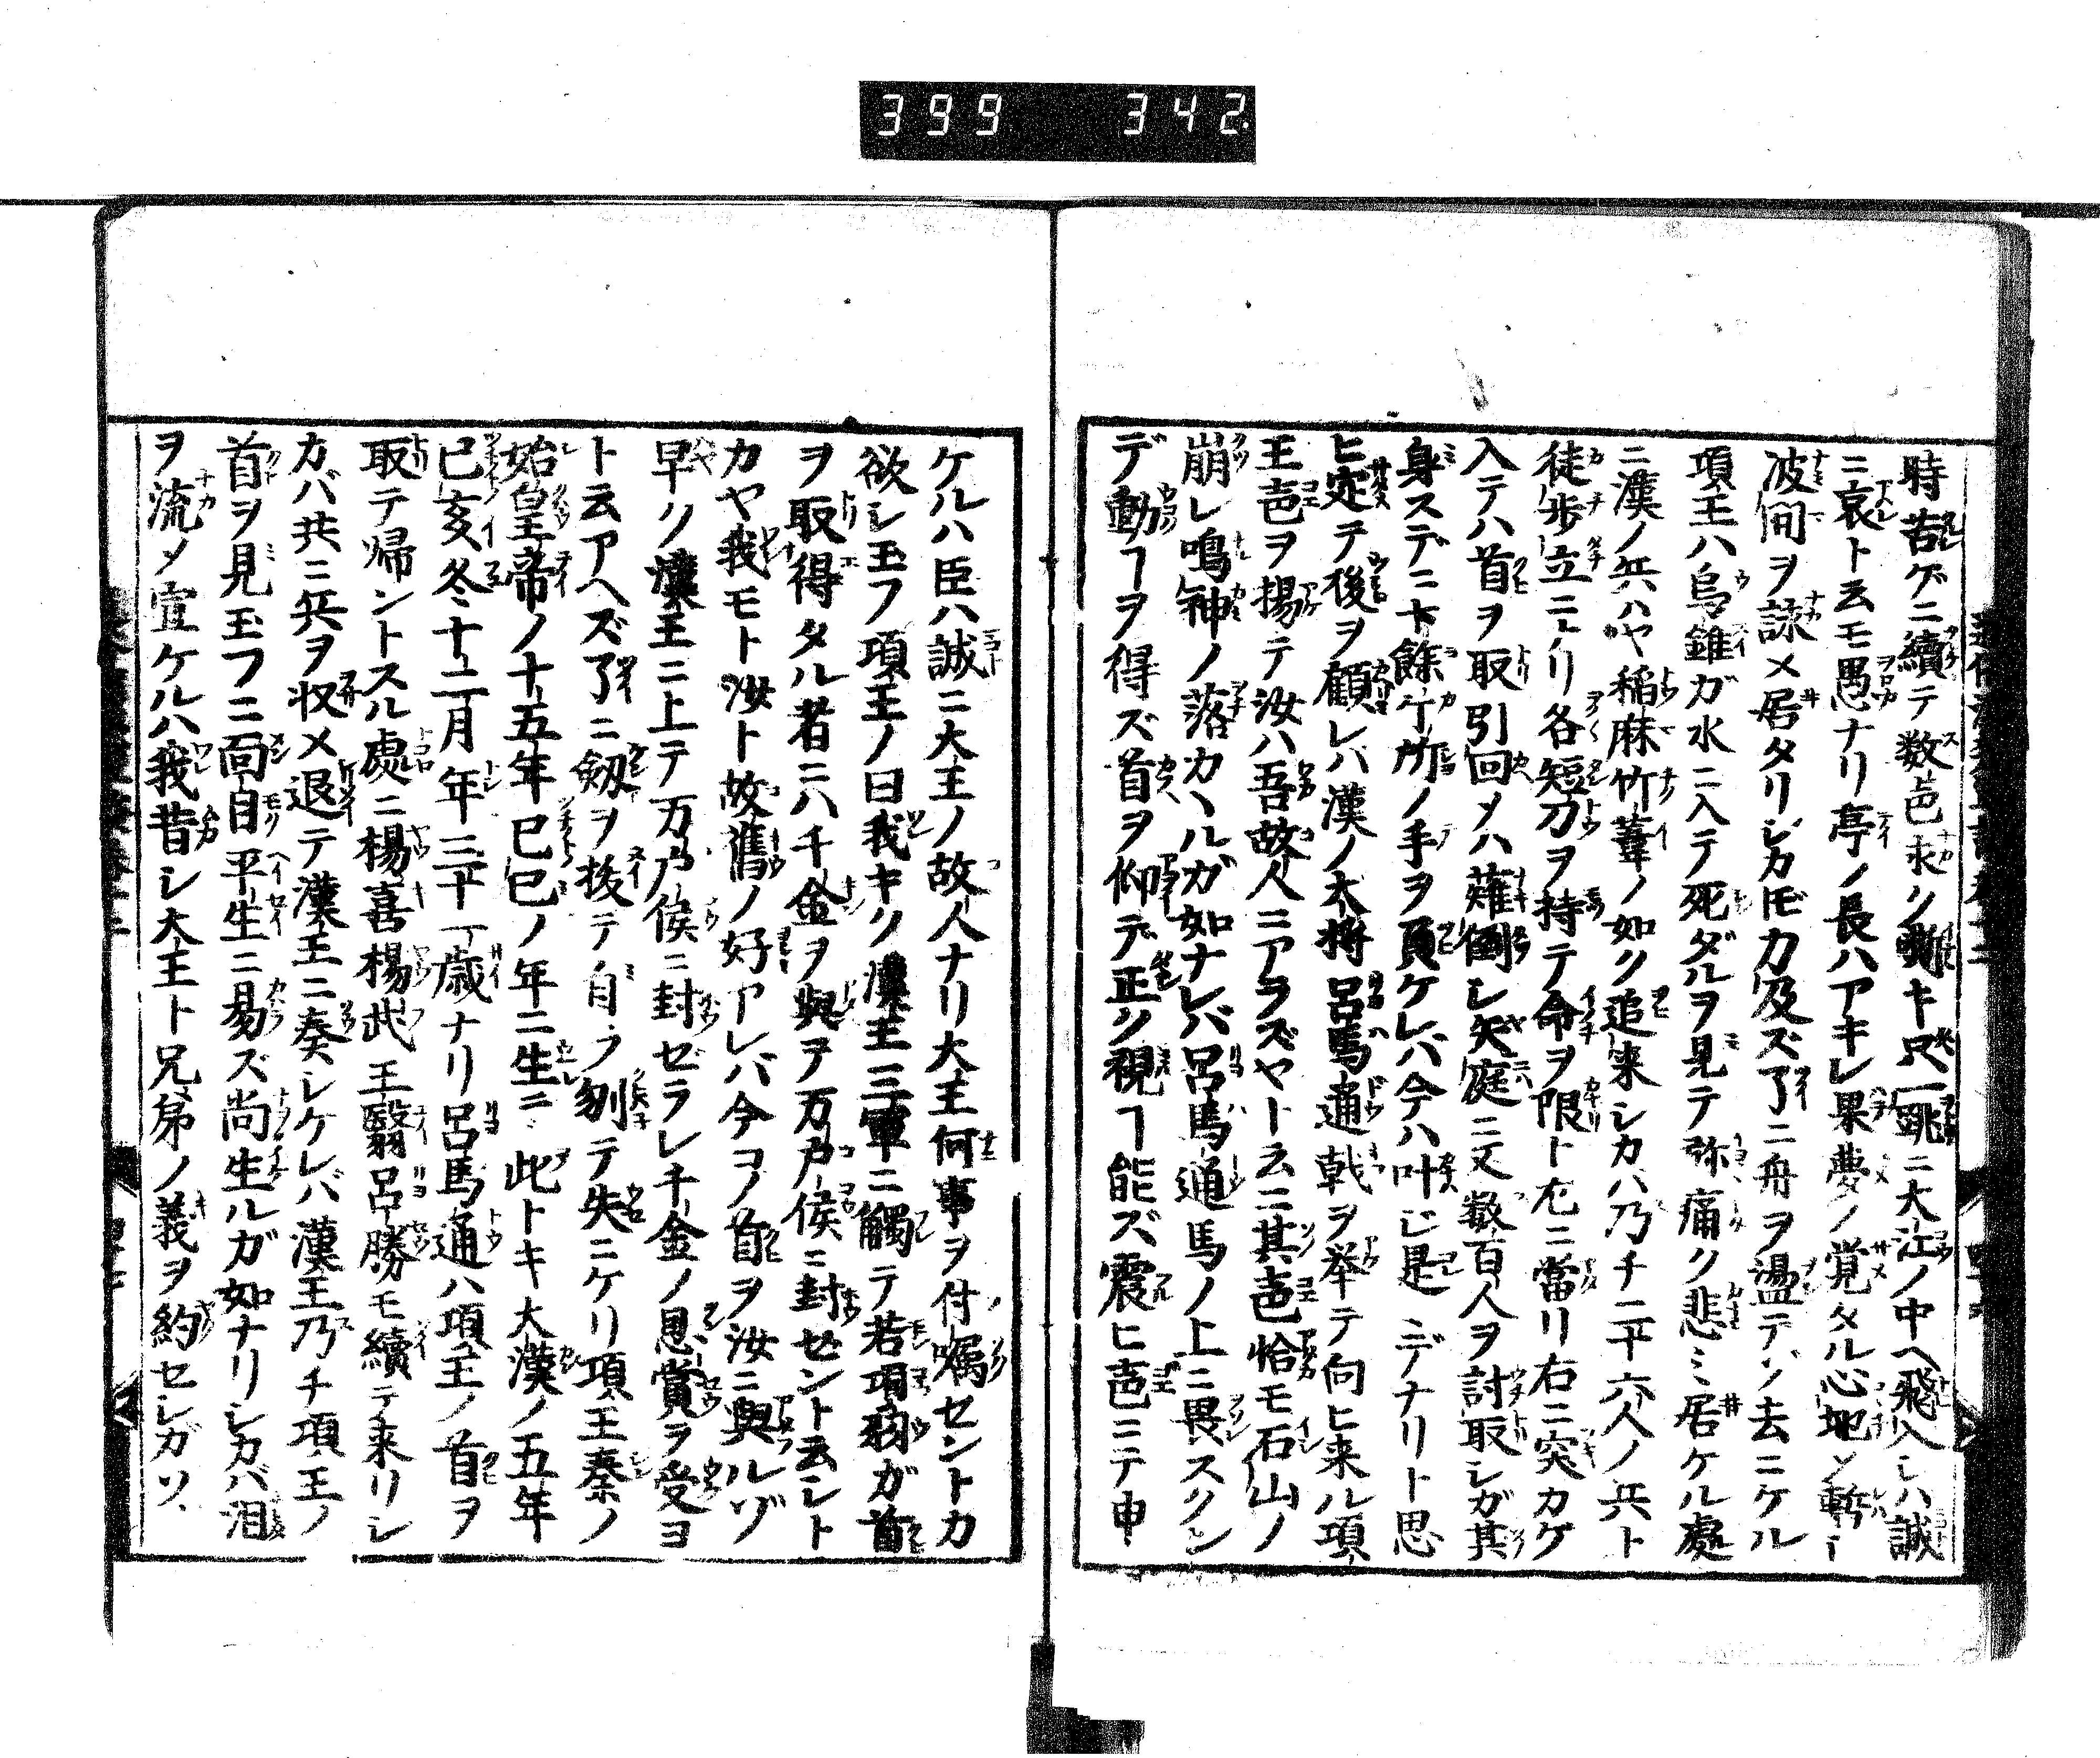 399 342
時苦ゲニ續テ数声永ク嘶キ只一跳ニ大江ノ中ヘ飛入レバ誠
ニ哀ト云モ愚ナリ亭ノ長ハアキレ果夢ノ覚タル心地シ暫シ
波間ヲ詠メ居タリシカ𪜈力及ズ了ニ舟ヲ盪テゾ去ニケル
項王ハ烏錐ガ水ニ入テ死ダルヲ見テ弥痛ク悲ミ居ケル處
ニ漢ノ兵ハヤ稲麻竹葦ノ如ク追来シカバ乃チ二十六人ノ兵ト
徒歩立ニナリ各短刀ヲ持テ命ヲ限ト左ニ當リ右ニ突カケ
入テハ首ヲ取引回メハ薙倒シ矢庭ニ又数百人ヲ討取シガ其
身ステニ十餘ケ所ノ手ヲ負ケレバ今ハ叶ジ是デナリト思
ヒ定テ後ヲ顧レバ漢ノ大将呂馬通戟ヲ挙テ向ヒ来ル項
王声ヲ揚テ汝ハ吾故人ニアラズヤト云ニ其声恰モ石山ノ
崩レ鳴神ノ落カヽルガ如ナレバ呂馬通馬ノ上ニ畏スクン
デ動ヿヲ得ズ首ヲ仰デ正ク視ヿ能ズ震ヒ声ニテ申
ケルハ臣ハ誠ニ大王ノ故人ナリ大王何事ヲ付嘱セントカ
欲シ玉フ項王ノ曰我キク漢王三軍ニ觸テ若項羽ガ首
ヲ取得タル者ニハ千金ヲ與ヲ万戸侯ニ封セント云シト
カヤ我モト汝ト故舊ノ好アレバ今コノ首ヲ汝ニ與ルゾ
早ク漢王ニ上テ万乃侯ニ封ゼラレ千金ノ恩賞ヲ受ヨ
ト云アヘズ了ニ劔ヲ抜テ自ラ刎テ失ニケリ項王秦ノ
始皇帝ノ十五年己巳ノ年ニ生ニ此トキ大漢ノ五年
己亥冬十二月年三十一歳ナリ呂馬通ハ項王ノ首ヲ
取テ帰ントスル處ニ楊喜楊武王翳呂勝モ續テ来リシ
カバ共ニ兵ヲ収メ退テ漢王ニ奏シケレバ漢王乃チ項王ノ
首ヲ見玉フニ面目平生ニ易ズ尚生ルガ如ナリシカバ泪
ヲ流メ宣ケルハ我昔シ大王ト兄弟ノ義ヲ約セシガソ